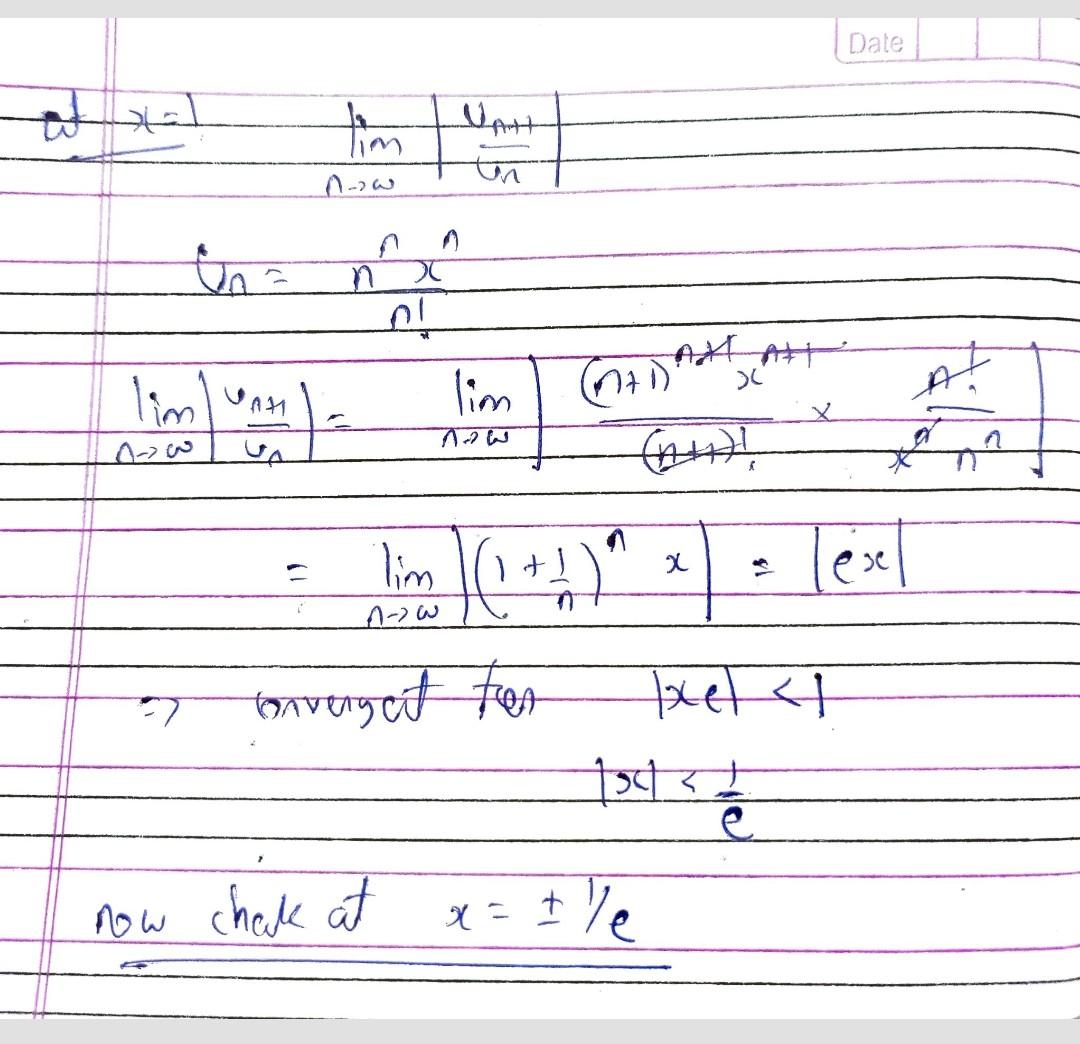 Date
at x=1 lim n→∞ |Un+1/Un|
Un = n^n x^n / n!
lim n→∞ |Un+1/Un| = lim n→∞ |(n+1)^n+1 x^n+1 / (n+1)! × n! / x^n n^n|
= lim n→∞ |(1+1/n)^n x| = |ex|
=> |xe| <1
|x| < 1/e
now at x = ± 1/e